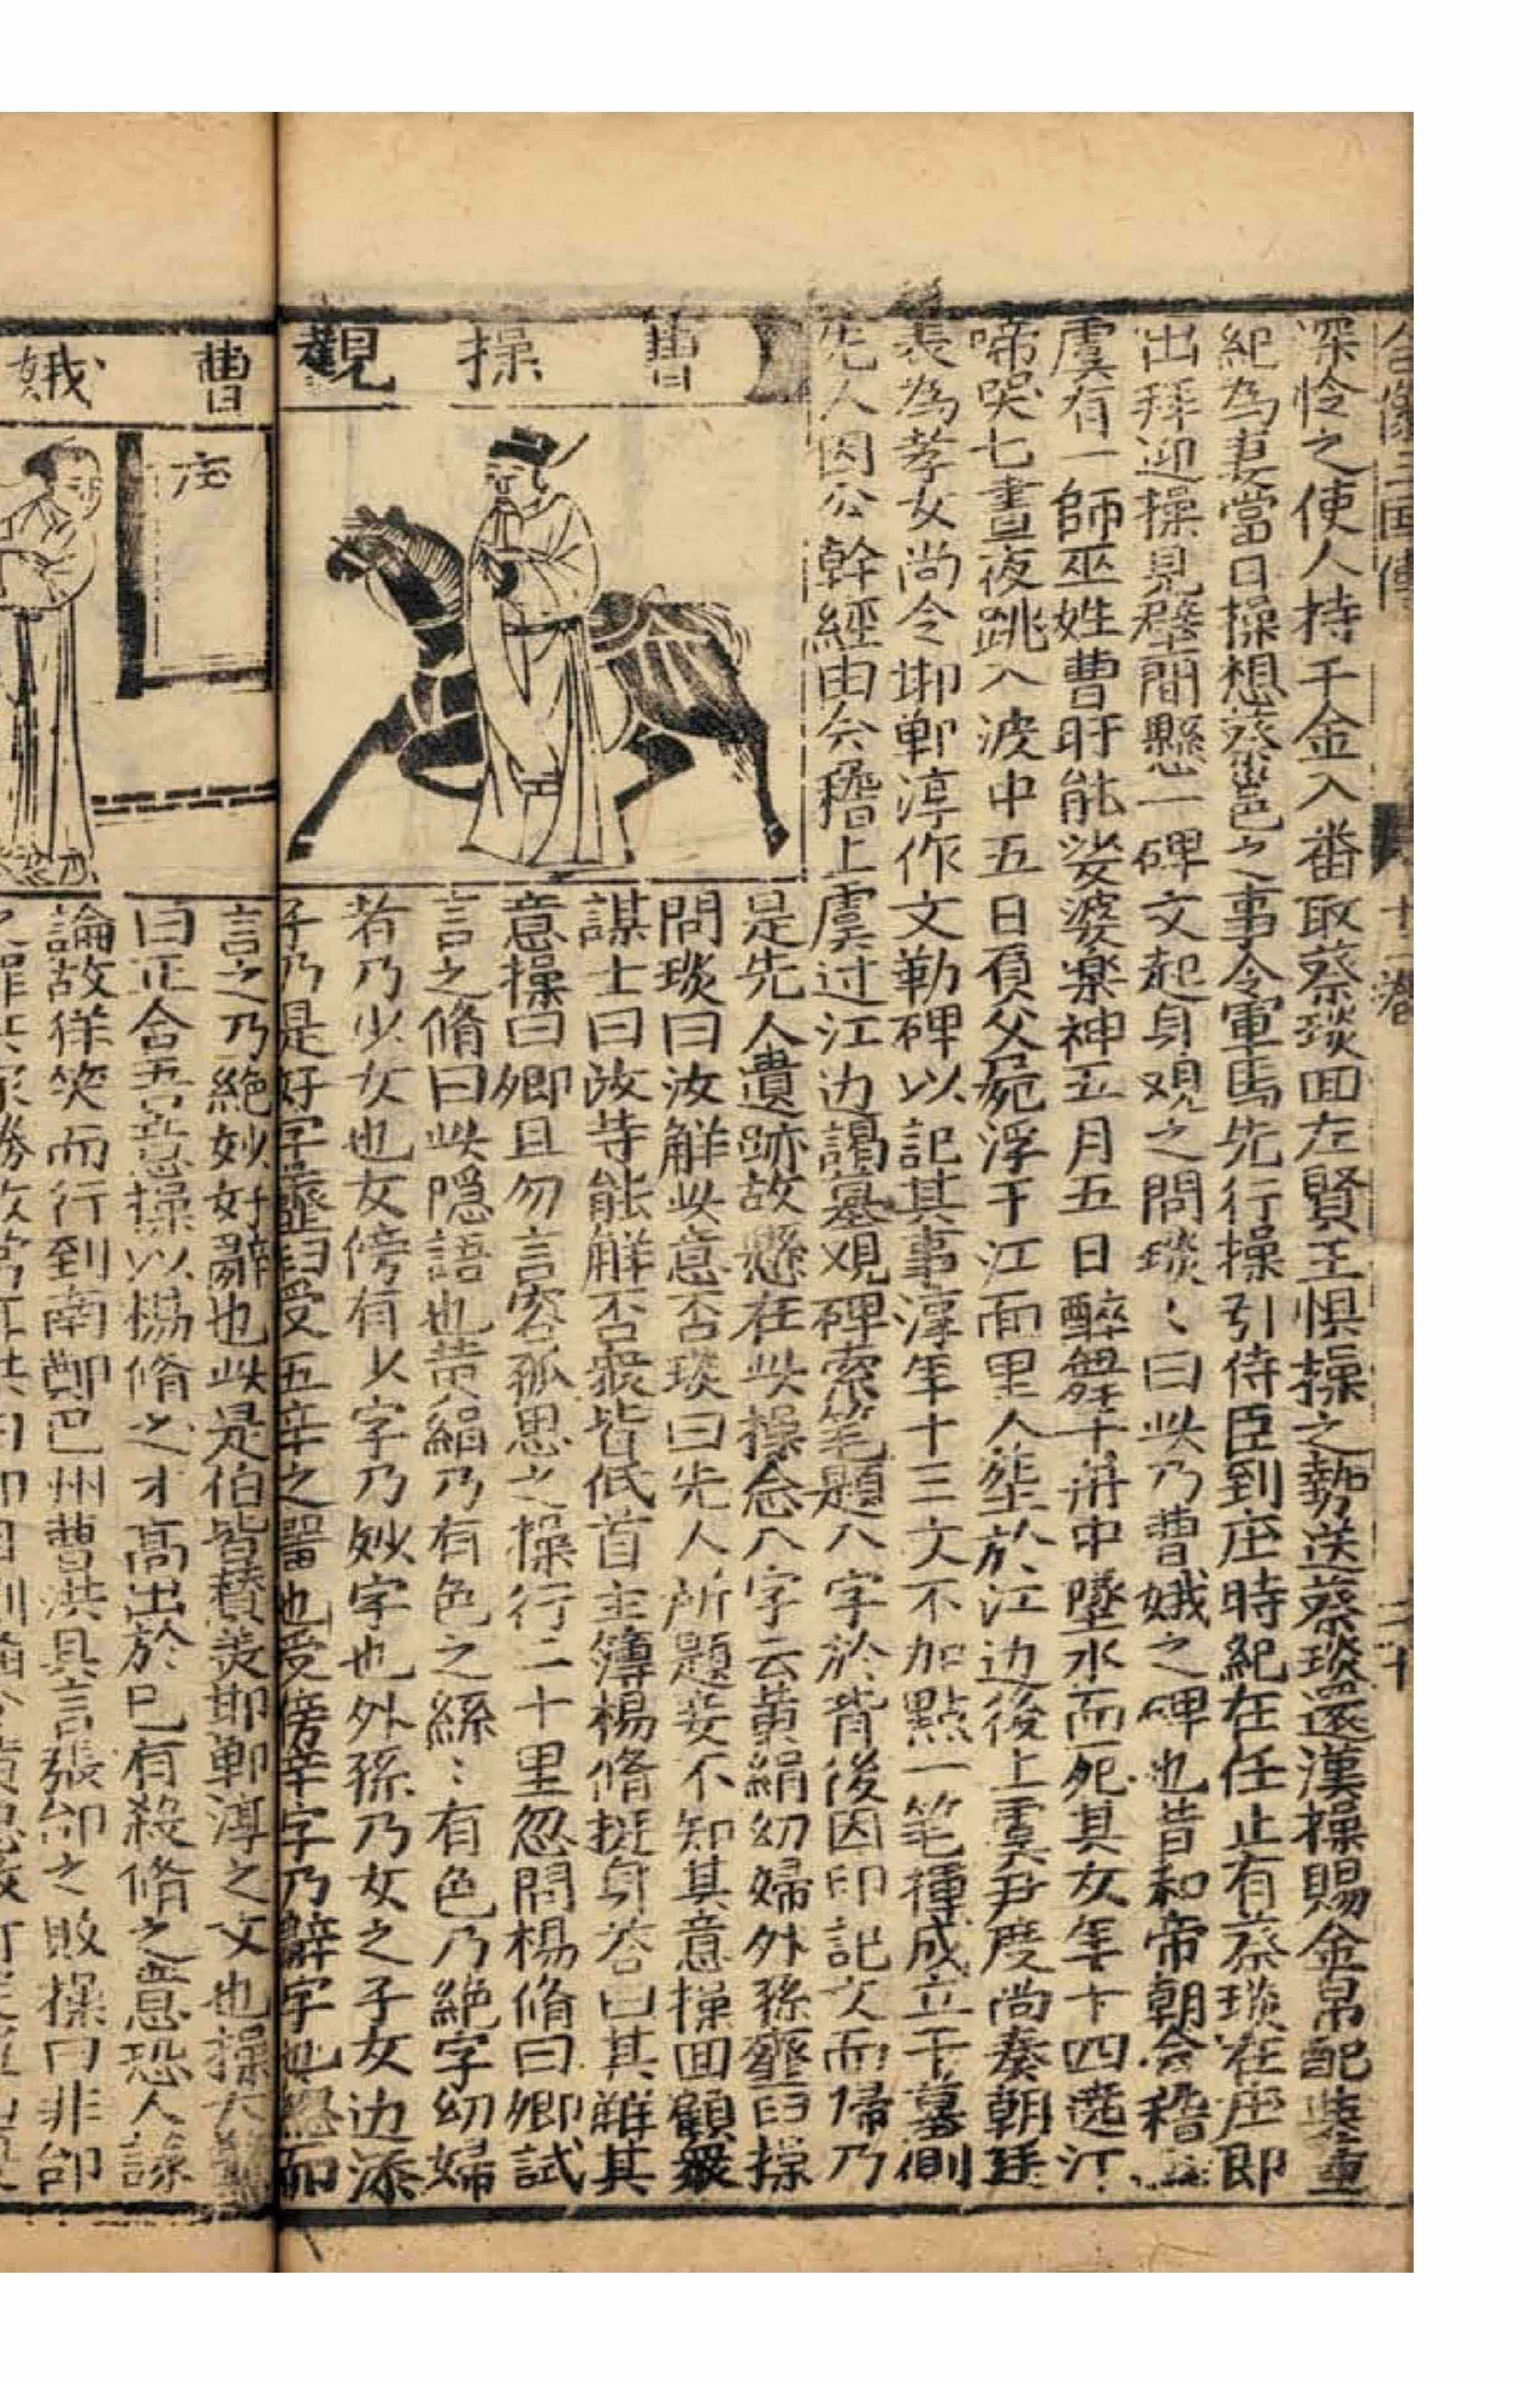 全像三國傳 十二卷 二十
深怜之使人持千金入番取蔡琰回左賢王惧操之勢送蔡琰還漢操賜金帛配董
紀為妻當日操想蔡邕之事令軍馬先行操引侍臣到庄時紀在任止有蔡琰在庄即
出拜迎操見壁間懸一碑文起身覌之問琰〻曰此乃曹娥之碑也昔和帝朝会稽上
虞有一師巫姓曹盱能娑婆楽神五月五日醉舞于舟中墜水而死其女年十四遶江
啼哭七晝夜跳入波中五日負父屍浮于江面里人塟於江边後上虞尹度尚奏朝廷
表為孝女尚令邯鄲淳作文勒碑以記其事淳年十三文不加點一笔揮成立于墓側
先人因公幹經由会稽上虞过江边謁墓覌碑索笔題八字於背後因印記文而歸乃
曹操觀
是先人遺跡故懸在此操念八字云黄絹幼婦外孫虀臼操
問琰曰汝觧此意否琰曰先人所題妾不知其意操回顧衆
謀士曰汝等能觧否衆皆低首主簿楊脩挺身荅曰某觧其
意操曰卿且勿言容孤思之操行二十里忽問楊脩曰卿試
言之脩曰此隠語也黄絹乃有色之絲〻有色乃絶字幼婦
者乃少女也女傍有少字乃妙字也外孫乃女之子女边添
子乃是好字虀臼受五辛之噐也受傍辛字乃辭字也緫而
曹娥
庄
言之乃絶妙好辭也此是伯喈賛羙邯鄲淳之文也操大
曰正合吾意操以楊脩之才高出於己有殺脩之意恐人
論故佯笑而行到南鄭巴州曹洪具言張郃之敗操曰非郃